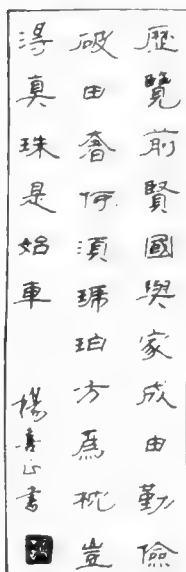 歷覽前賢國與家成由勤儉
破由奢何須琥珀方為枕豈
得真珠是始車
楊喜正書